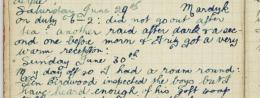 Saturday June 29th Mardyk
on duty 6-2: did not go out after
tea: another raid after dark & a sec-
ond one before morn & Fritz got a very
warm reception:
Sunday June 30th
my day off so I had a roam round:
Gen Birdwood inspected the boys but I
have heard enough of his soft soap